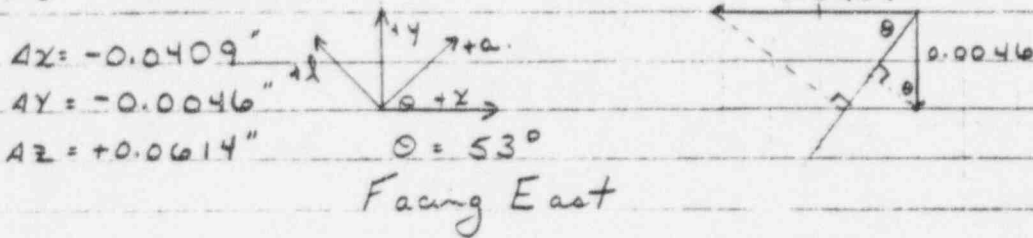 Δx = -0.0409"
ΔY = -0.0046"
ΔZ = +0.0614"
+l
+y
+a.
θ +x
θ = 53°
Facing East
θ
0.0046
θ